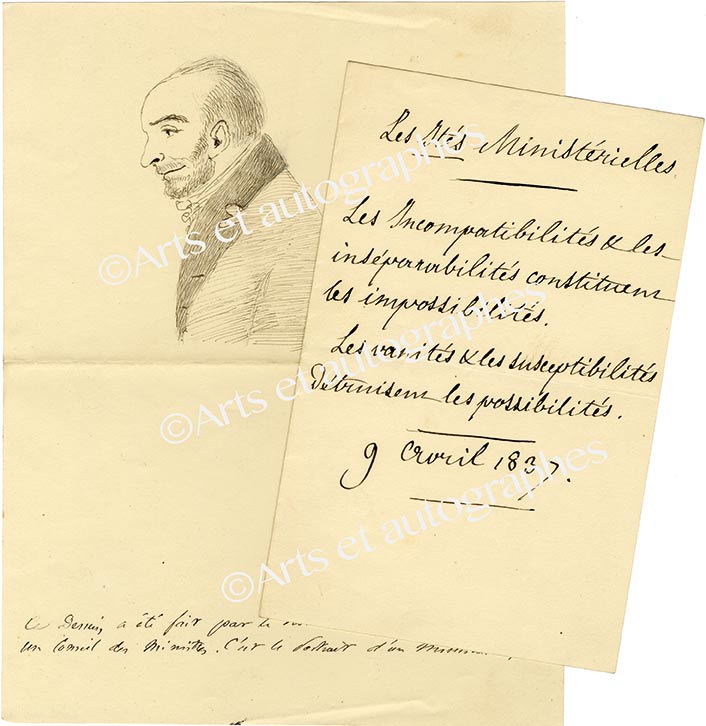 Les Ités Ministérielles
Les Incompatibilités & les
inséparabilités constituent
les impossibilités.
Les vanités & les susceptibilités
Détruisent les possibilités.
9 avril 1837.
Ce Dessin a été fait par le
un Conseil des Ministres. C'est le Portrait d'un
©Arts et autographes
©Arts et autographes
©Arts et autographes